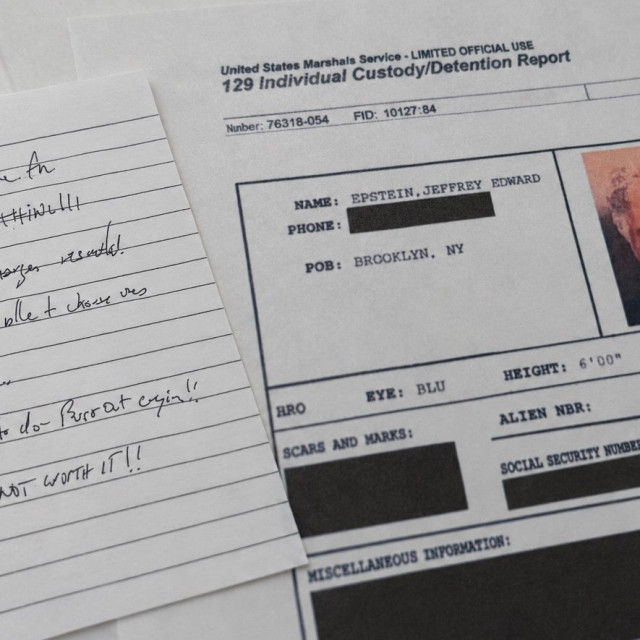 THING!!!
to do- Burst out cryin!!
NOT WORTH IT!!
United States Marshals Service - LIMITED OFFICIAL USE
129 Individual Custody/Detention Report
Number: 76318-054 FID: 10127484
NAME: EPSTEIN,JEFFREY EDWARD
PHONE:
POB: BROOKLYN, NY
HRO EYE: BLU HEIGHT: 6'00"
SCARS AND MARKS: ALIEN NBR:
SOCIAL SECURITY NUMBE
MISCELLANEOUS INFORMATION: